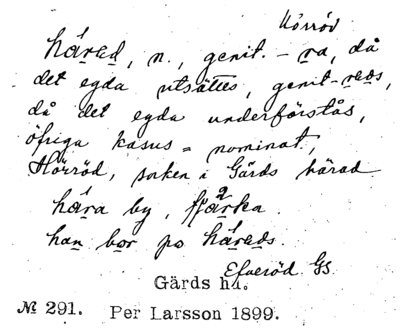 Hörröd
härad, n., genit. – ra, då
det egda utsättes, genit – reds,
då det egda underförstås,
öfriga kasus = nominat.,
Hörröd, socken i Gärds härad
hära by, fjärka.
han bor po häreds.
Efveröd Gs
Gärds hd.
№ 291. Per Larsson 1899.